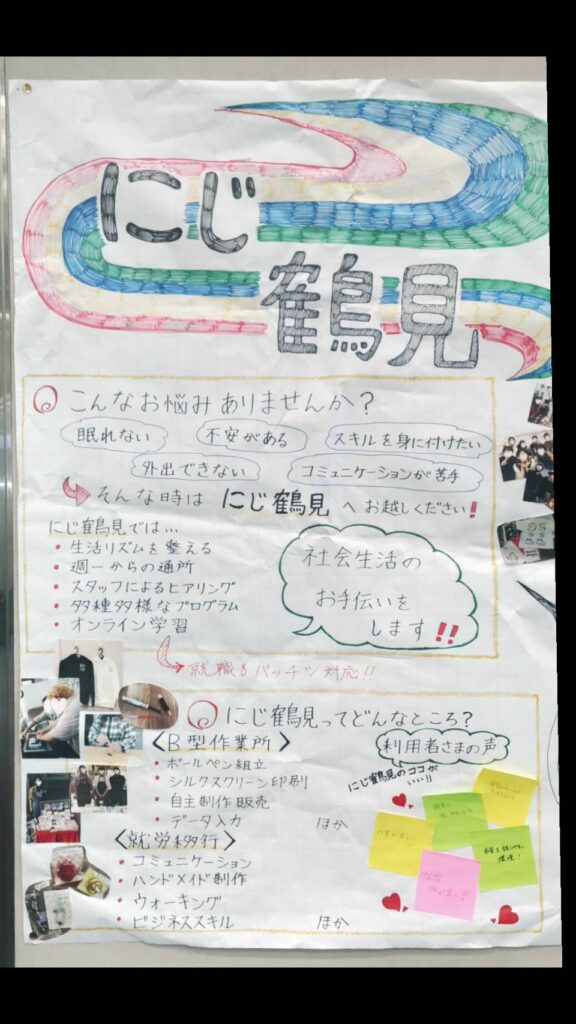 にじ
鶴見
Q こんなお悩みありませんか?
眠れない
不安がある
スキルを身に付けたい
外出できない
コミュニケーションが苦手
そんな時は にじ鶴見 へお越しください!
にじ鶴見では…
・生活リズムを整える
・週一からの通所
・スタッフによるヒアリング
・多種多様なプログラム
・オンライン学習
社会生活の
お手伝いを
します!!
就職もバッチリ対応!!
Q にじ鶴見ってどんなところ?
〈B型作業所〉
・ボールペン組立
・シルクスクリーン印刷
・自主制作販売
・データ入力 ほか
〈就労移行〉
・コミュニケーション
・ハンドメイド制作
・ウォーキング
・ビジネススキル ほか
利用者さまの声
にじ鶴見のココが
いい!!